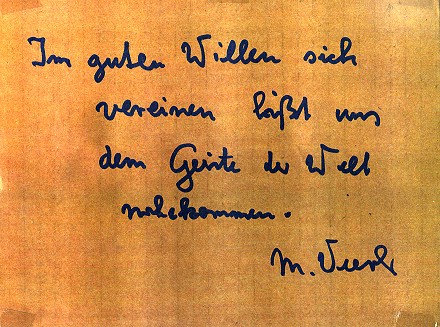 Im guten Willen sich
vereinen läßt uns
dem Geiste der Welt
nahekommen.
M.